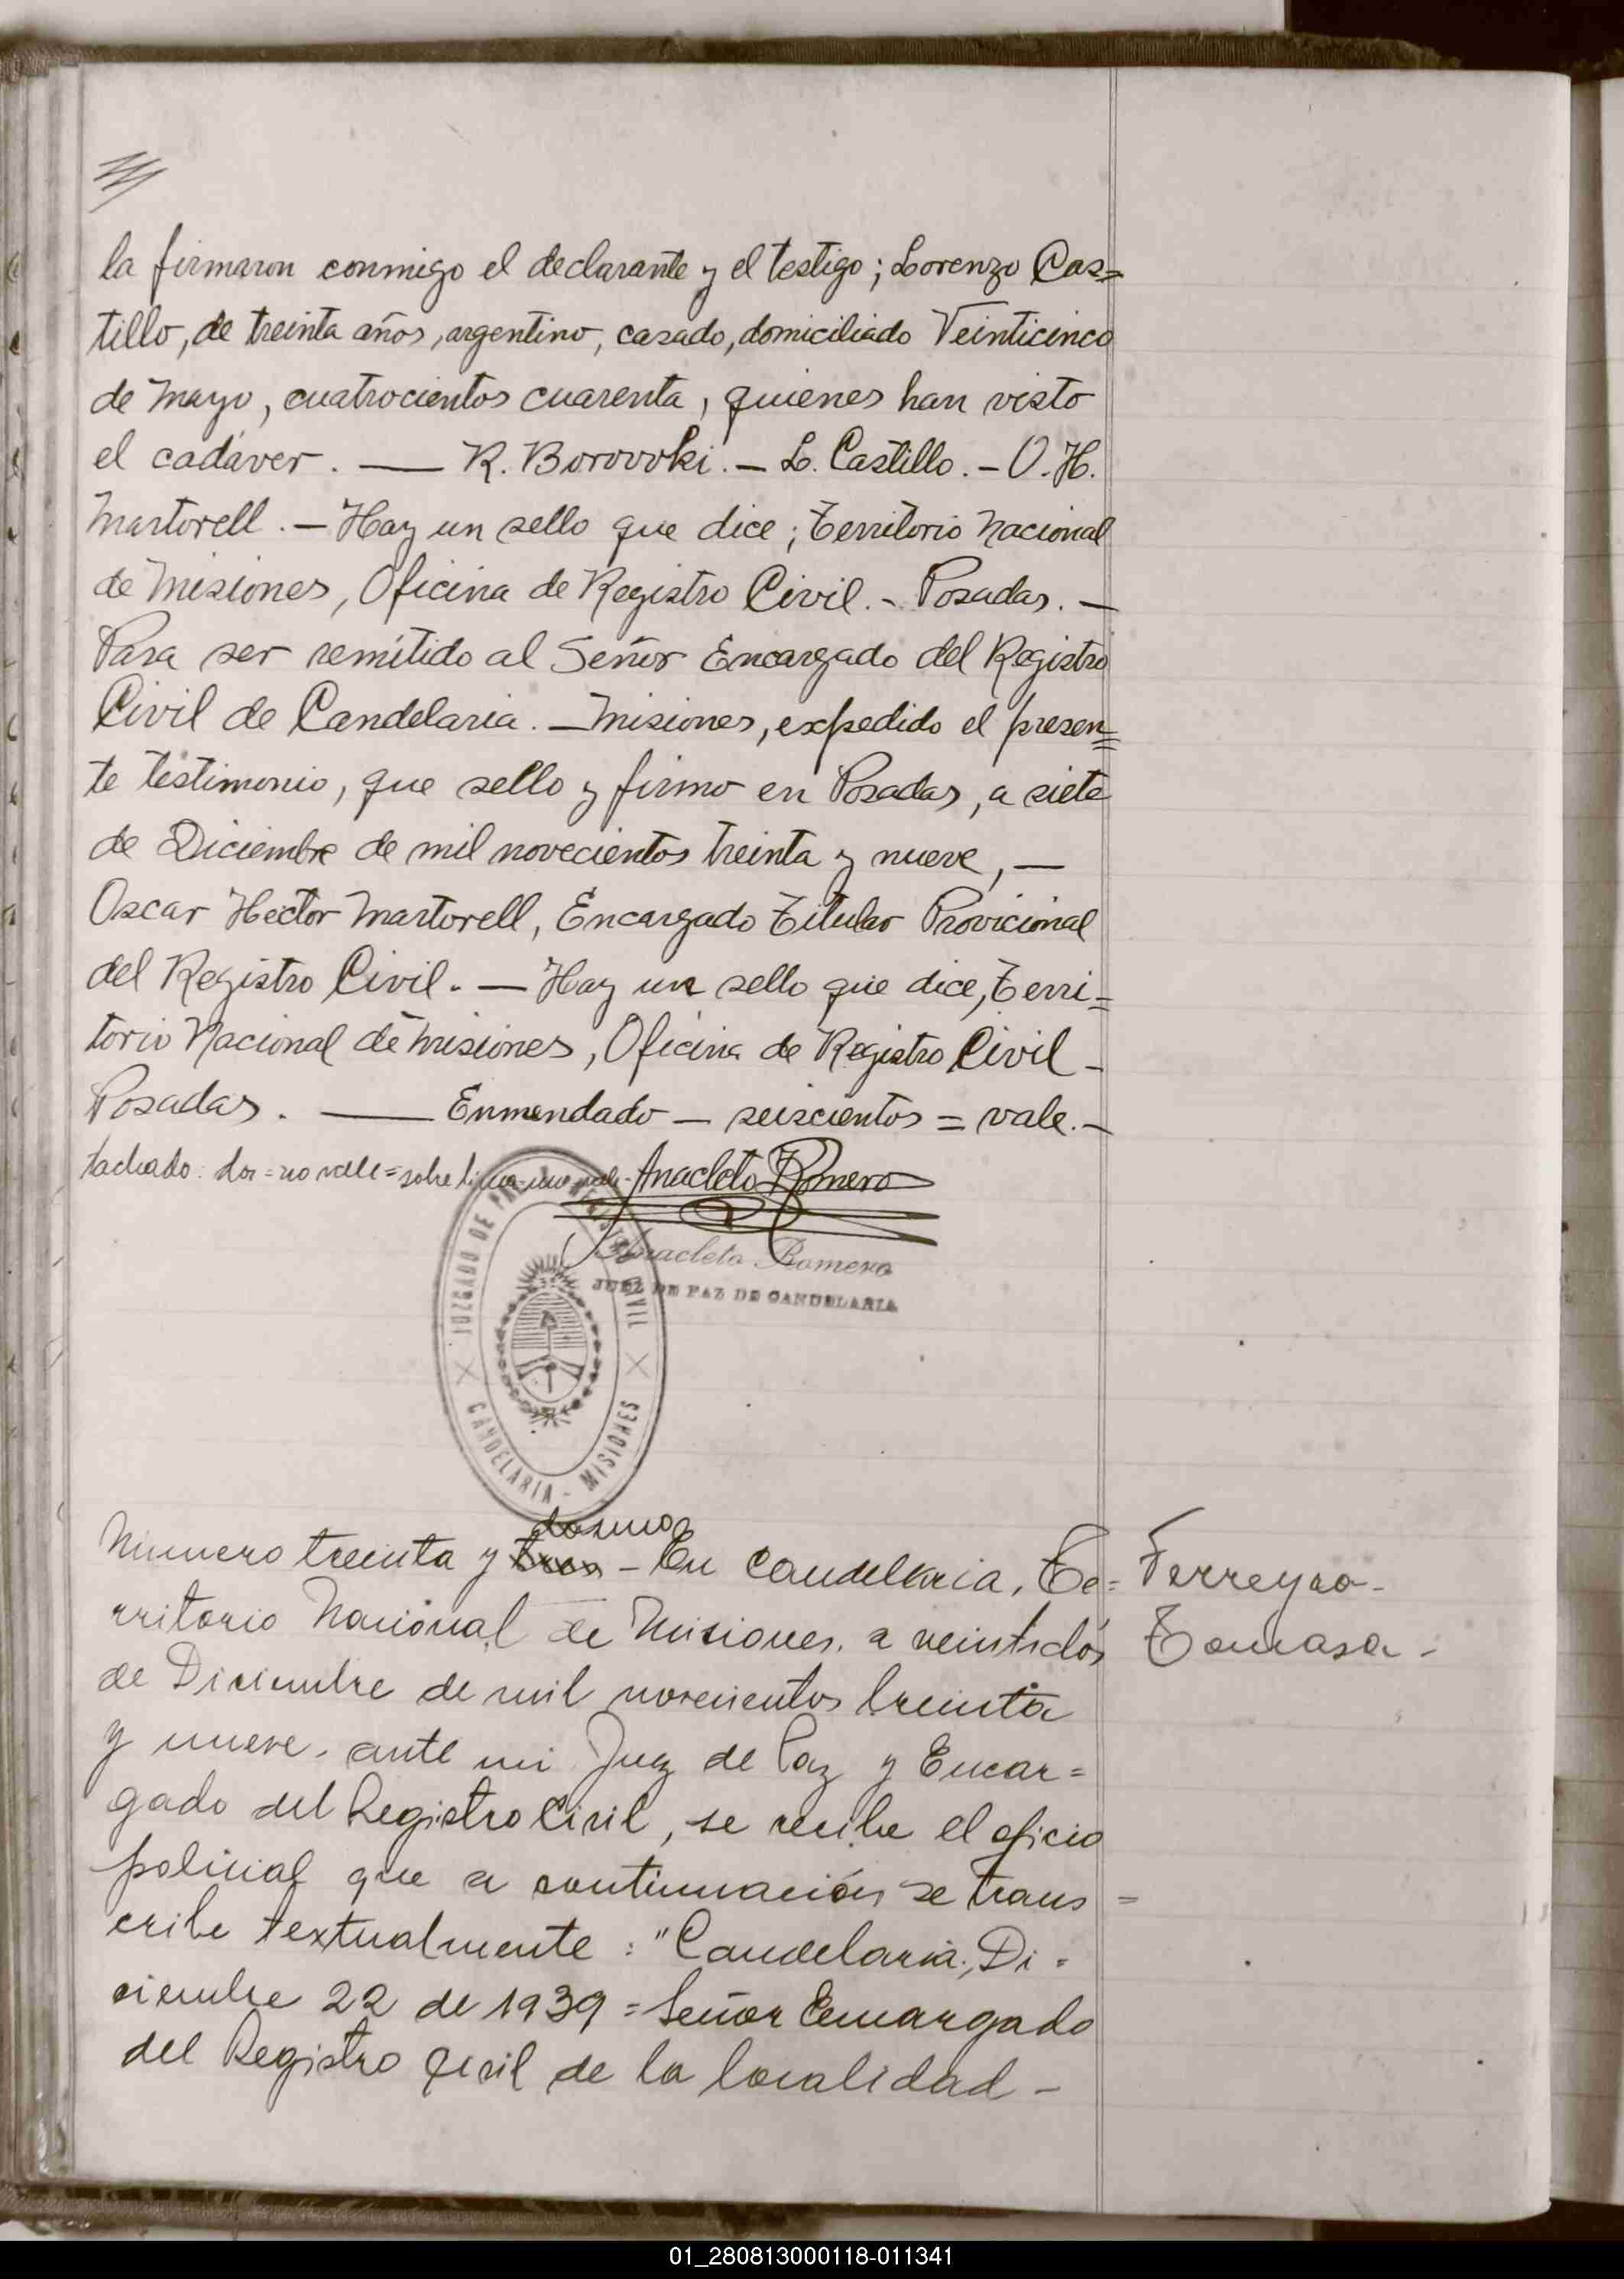 la firmaron conmigo el declarante y el testigo; Lorenzo Cas=
tillo, de treinta años, argentino, casado, domiciliado Veinticinco
de Mayo, cuatrocientos cuarenta, quienes han visto
el cadáver. — R. Borovoki. — L. Castillo. — O. H.
Martorell. — Hay un sello que dice; Territorio Nacional
de Misiones, Oficina de Registro Civil. - Posadas. —
Para ser remitido al Señor Encargado del Registro
Civil de Candelaria. — Misiones, expedido el presen=
te testimonio, que sello y firmo en Posadas, a siete
de Diciembre de mil novecientos treinta y nueve, —
Oscar Hector Martorell, Encargado Titular Provicional
del Registro Civil. — Hay un sello que dice, Terri=
torio Nacional de Misiones, Oficina de Registro Civil -
Posadas. — Enmendado — seiscientos = vale. —
tachado: dos = no vale = sobre linea = uno vale. Anacleto Romero
Anacleto Romero
JUEZ DE PAZ DE CANDELARIA
JUZGADO DE PAZ REGISTRO CIVIL
CANDELARIA - MISIONES
uno
Numero treinta y tres - En Candelaria, Te=
rritorio Nacional de Misiones, a veintidós
de Diciembre de mil novecientos treinta
y nueve, ante mi Juez de Paz y Encar=
gado del Registro Civil, se recibe el oficio
policial que a continuación se trans=
cribe textualmente: "Candelaria, Di=
ciembre 22 de 1939 = Señor Encargado
del Registro Civil de la localidad -
Ferreyra -
Tomasa -
01_280813000118-011341